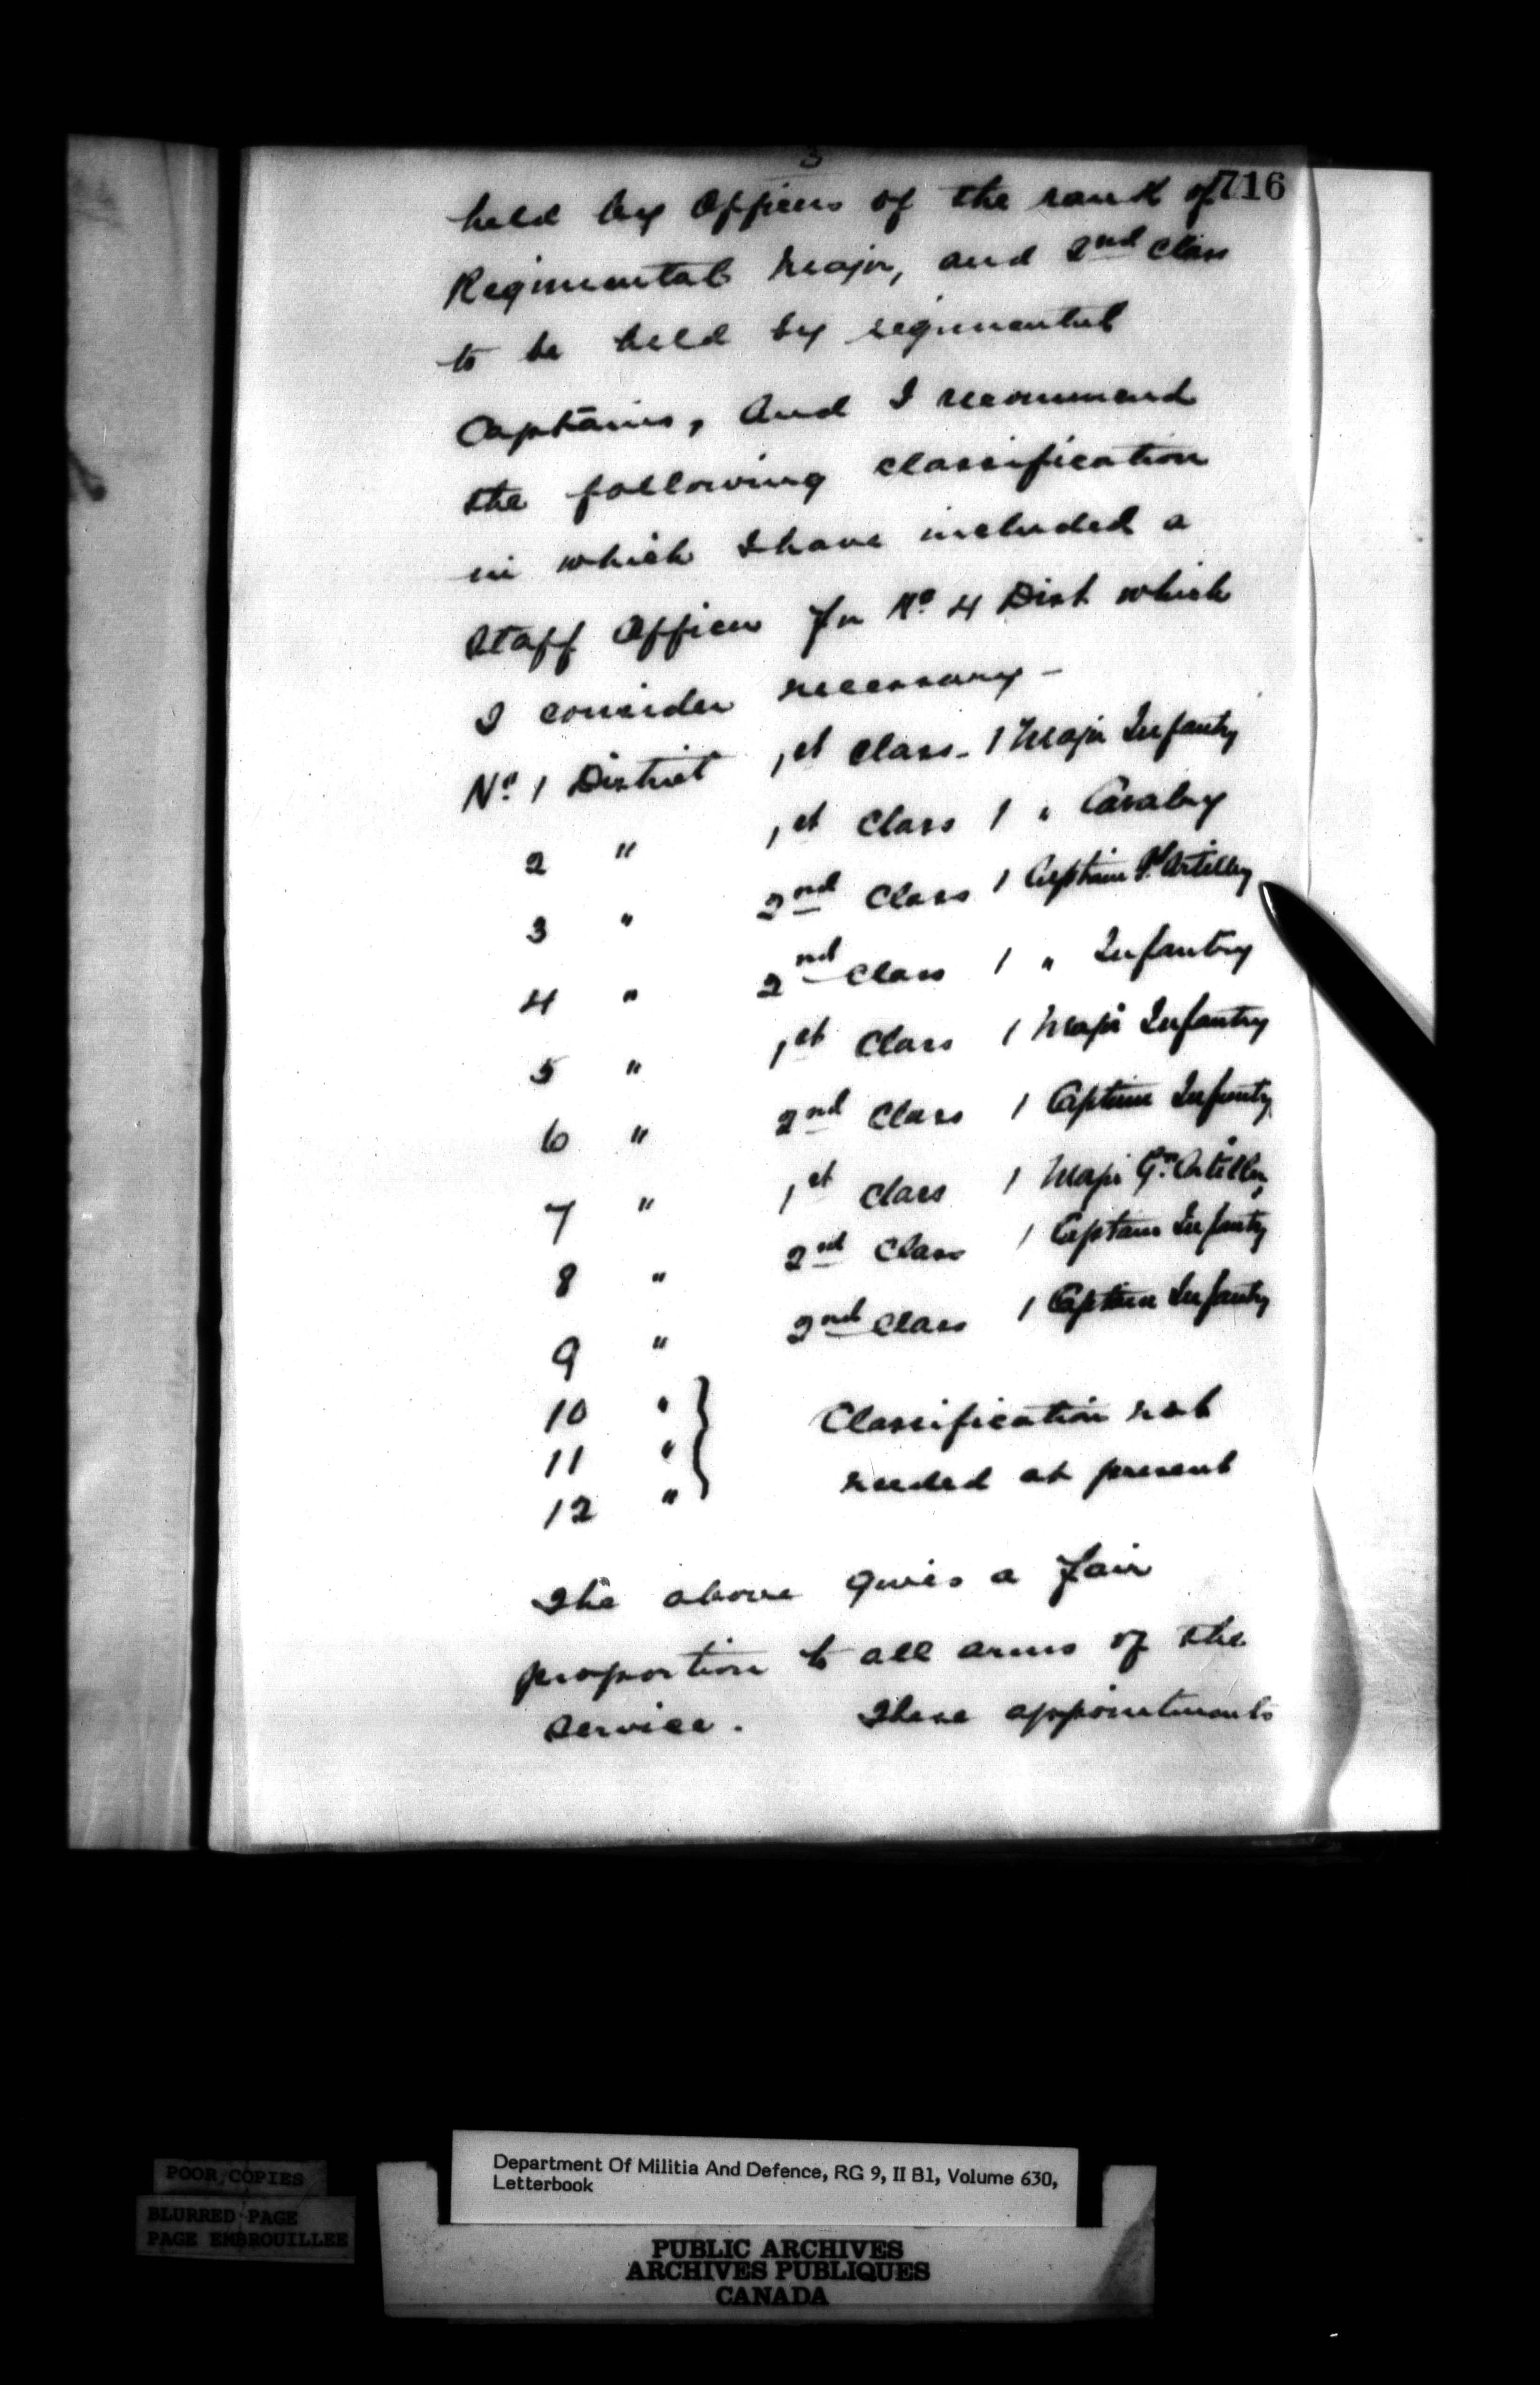 3
716
held by Officers of the rank of
Regimental Major, and 2nd Class
to be held by regimental
Captains, And I recommend
the following classification
in which I have included a
Staff Officer for No 4 Dist which
I consider necessary –
No 1 District 1st Class – 1 Major Infantry
2 " 1st Class 1 " Cavalry
3 " 2nd Class 1 Captain Artillery
4 " 2nd Class 1 " Infantry
5 " 1st Class 1 Major Infantry
6 " 2nd Class 1 Captain Infantry
7 " 1st Class 1 Major Gn. Artillery
8 " 2nd Class 1 Captain Infantry
9 " 2nd Class 1 Captain Infantry
10 " } Classification not
11 "
12 " needed at present
The above gives a fair
proportion to all arms of the
service. These appointments
Department Of Militia And Defence, RG 9, II B1, Volume 630,
Letterbook
POOR COPIES
BLURRED PAGE
PAGE EMBROUILLEE
PUBLIC ARCHIVES
ARCHIVES PUBLIQUES
CANADA